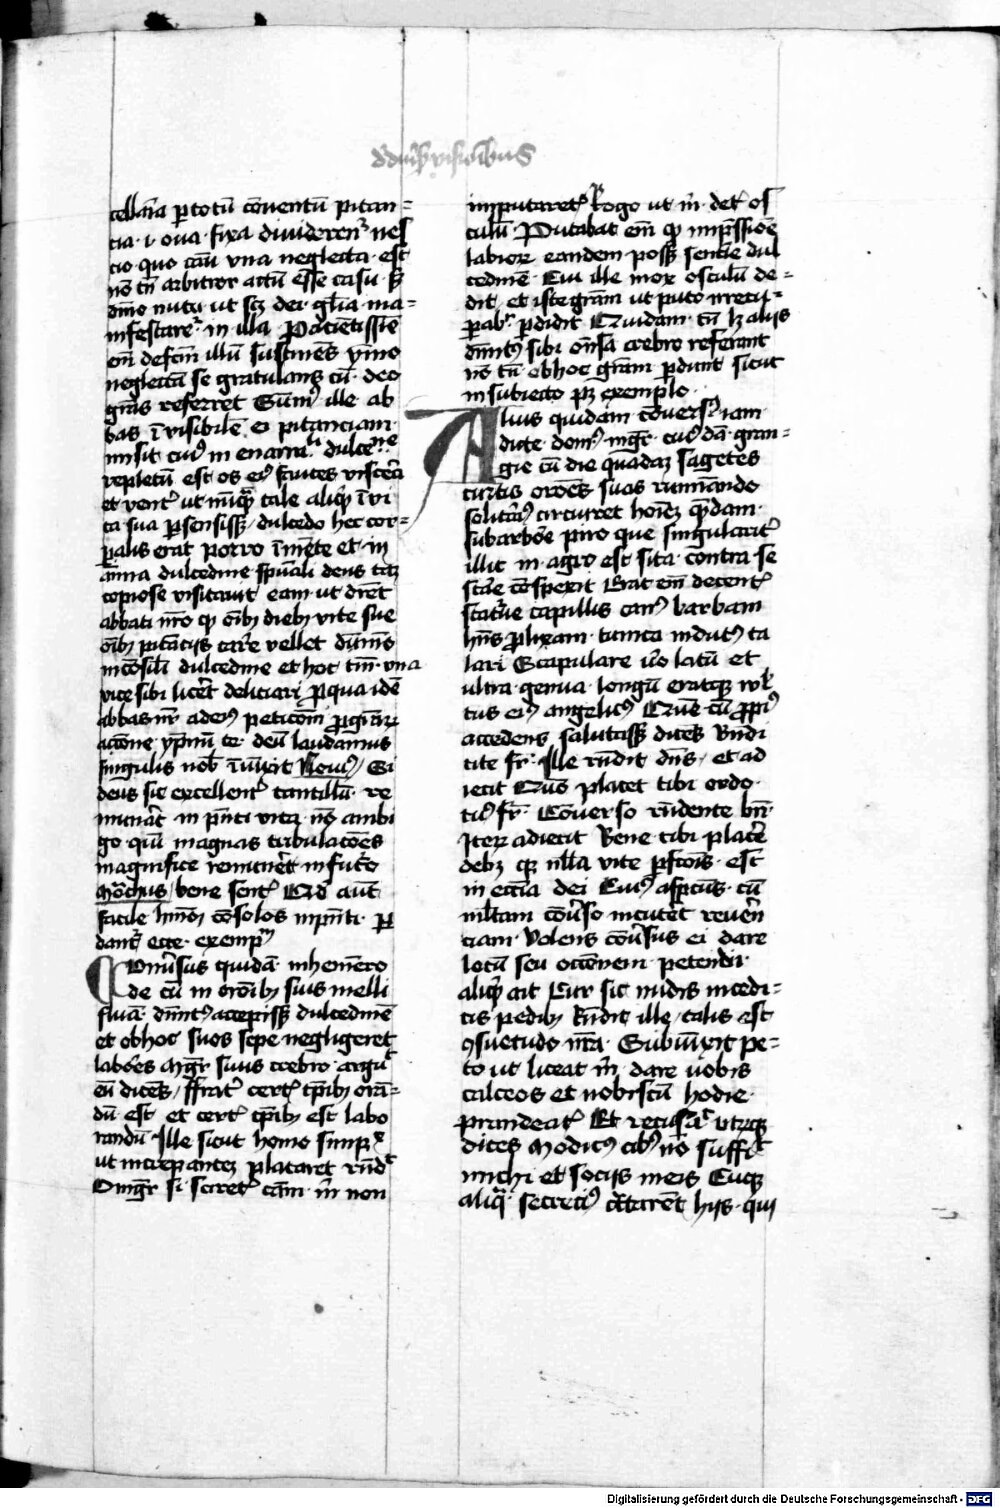 d diuīs visioībus
cellaīa p totū cōventū pitan=
cia · i · ova · fixa dividerenᵗ nes
cio quo casu una neglecta est
nō tn̄ arbitror actū esse casu sʒ
dīno nutu ut scʒ dei gl̄ia ma=
nifestareᵗ in illa Paciētissīe
em̄ defcm̄ illū sustinēs ymo
neglectū se gratulans cū deo
grās referret Summꝰ ille ab
bas īvisibilē ei pitanciam
misit cuiꝰ in enarra dulce
repletū est os eiꝰ fauces viscera
et venter ut nūqᵃ tale aliqᵈ ī vi
ta sua persensissʒ / dulcedo hec cor=
palis erat porro ī mēte et in
anīa dulcedine spūali deus tam
copiose visitavit eam ut dicēt
abbati nr̄o qᵈ oībʒ diebʒ vite sue
oībʒ pitāciis carere vellet dūmō
incōsili dulcedine et hoc tm̄ una
vice sibi licēt deliciari p qua idē
abbas nr̄ ad eiꝰ peticōem
accōne ypnū te deū laudamus
singulis nob iniūxit Noviꝰ / Si
deus sic excellentᵗ tantillū re
munāt in pn̄ti vita nō ambi
go quī magnas tribulacōes
magnifice remunēt in futᵒ
Mōchus / bene sentis Qd aūt
facile hmōi cōsolos inpn̄ti per
dantᵗ ecce exempᵐ
Conūsus quidā in hemēro
de cū in orōibʒ suis melli
fluā dīnitꝰ accepissʒ dulcedinē
et ob hoc suos sepe negligeret
labōes mgr̄ suus crebro argu
eū dicēs / ffratᵗ certis tp̄ibʒ orā=
dū est et certis tp̄ibʒ est labo
randū Ille sicut homo simpˣ
ut increpantem placaret rn̄dᵗ
O mgr̄ si sciretᵗ cām m̄ non
imputaretᵗ Rogo ut m̄ detᵗ os
culū Putabat em̄ qᵈ impssiōe
labiorum eandem possʒ sentīe dul
cedinē Cui ille mox osculū de=
dit et iste grām ut puto irrecu=
pabᵗ pdidit Quidam tn̄ lʒ aliis
dīnitꝰ sibi ōnsa crebro referant
nō tn̄ ob hoc grām pdunt sicut
in subiecto pʒ exemplo
Alius quidam conversꝰ iam
dicte domꝰ mgr̄ cuiꝰdā gran=
gie cū die quadaʒ sagetes
curtis orōēs suas ruminando
solitariꝰ circuiret hoīeʒ qᵉndam
sub arbōe piro que singularitᵗ
illic in agro est sita contra se
stāe conspexit Erat em̄ decentᵗ
stature capillis canꝰ barbam
hn̄s plixam tunica indutꝰ ta
lari Scapulare v̄o latū et
ultra genua longū eratqʒ vul
tus eiꝰ angelicꝰ Quē cū ppiꝰ
accedens salutassʒ dicēs Bn̄di
cite fr̄ Ille rn̄dit dn̄s / et ad
iecit Quō placet tibi ordo
tuꝰ fr̄ Cōverso rn̄dente bn̄
Iteʒ adiecit Bene tibi placēe
debʒ qʒ nlla vite pfcōis est
in eccīa dei Cuiꝰ aspectus cū
nlltam cōv̄so incutēt revēn
ciam Volens cōv̄sus ei dare
locū seu occōnem petendi
aliqᵈ ait Cur sic nudis incedi=
tis pedibʒ Rn̄dit ille / talis est
ꝯsuetudo nr̄a Subiūxit pe=
to ut liceat m̄ dare vobis
calceos et nobiscū hodie
prandeatᵗ Et recusāᵗ utrʒqʒ
dicēs Modicꝰ cibꝰ nō suffic
michi et sociis meis Cūqʒ
aliqᵃ secreciꝰ tctarēt hiis qui
Digitalisierung gefördert durch die Deutsche Forschungsgemeinschaft - DFG